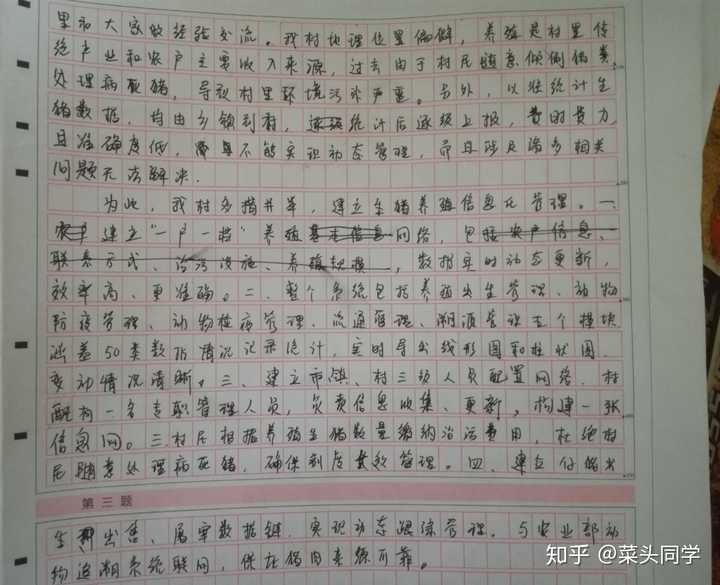 里和大家做经验交流。我村地理位置偏僻，养殖是村里传
统产业和农户主要收入来源，过去由于村民随意倾倒粪
处理病死猪，导致村里环境污染严重。另外，以往统计生
猪数据，均由乡镇到村，逐级统计后逐级上报，费时费力
且准确度低，不能实现动态管理，而且涉及诸多相关
问题无法解决。
为此，我村多措并举，建立生猪养殖信息化管理。一、
农户建立“一户一档”养殖基本信息网络，包括农户信息、
联系方式、治污设施、养殖规模，数据实时动态更新，
效率高、更准确。二、整个系统包括养殖出生管理、动物
防疫管理、动物检疫管理、流通管理、溯源管理五个模块
涵盖50类数据情况记录统计，实时导出线形图和柱状图，
变动情况清晰。三、建立市镇、村三级人员配置网络，村
配构一名专职管理人员，负责信息收集、更新，构建一张
信息网。三村民根据养殖生猪数量缴纳治污费用，杜绝村
民随意处理病死猪，确保到户管理。四、建立仔猪出
第三题
生出售、屠宰数据链，实现动态跟踪管理。与农业部动
物追溯系统联网，保证猪肉来源可靠。
知乎 @菜头同学